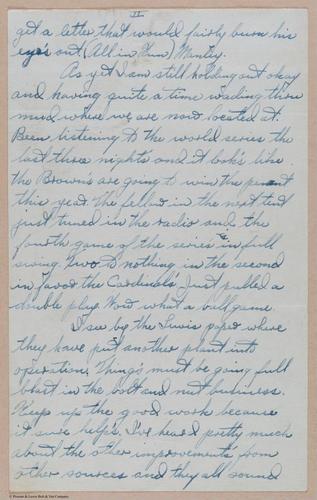 II
get a letter that would fairly burn his
eye's out (All in Fun) Manley.
As yet I am still holding out okay
and having quite a time wading thru
mud where we are now located at.
Been listening to the world series the
last three nights and it look's like
the Brown's are going to win the penant
this year. the fellow in the next tent
just tuned in the radio and the
fourth game of the series is in full
swing two to nothing in the second
in favor the Cardinals'. Just pulled a
double play Now what a ballgame.
I see by the Lewis paper where
they have put another plant into
operation, Thing's must be going full
blast in the bolt and nut business.
Keep up the good work because
it sure helps. I've heard pretty much
about the other improvements from
other sources and they all sound
© Pioneer & Lewis Bolt & Nut Company